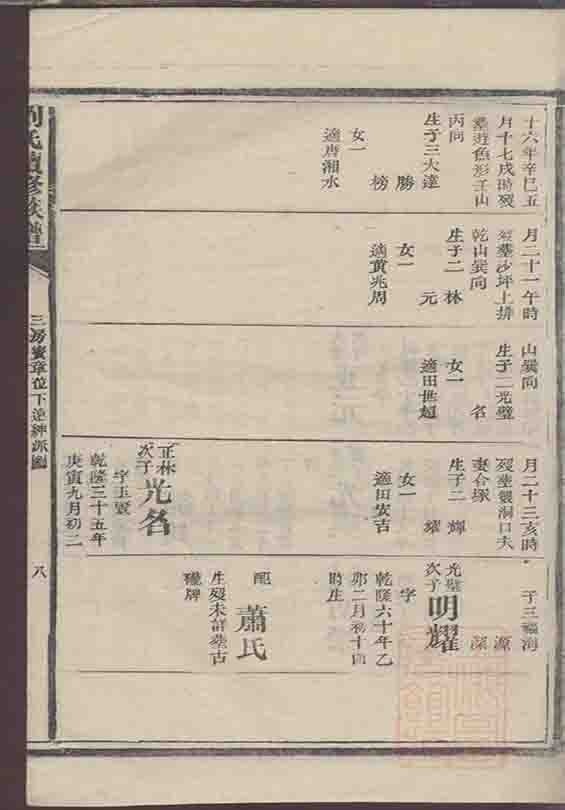 十六年辛巳五
月十七戌時歿
葬遊魚形壬山
丙向
生子三大達
勝
榜
女一
適唐湘水
月二十一午時
歿葬沙坪上排
乾山巽向
生子二林
元
女一
適黃兆周
山巽向
生子二光璧
名
女一
適田世超
月二十三亥時
歿葬觀洞口夫
妻合塚
生子二輝
耀
女一
適田安吉
正林
次子
光名
字玉賢
乾隆三十五年
庚寅九月初二
子三福海
源
深
光璧
次子
明耀
字
乾隆六十年乙
卯二月初十四
時生
配
蕭氏
生歿未詳葬古
壠牌
劉氏續修族譜
三房
章位下逆紳派圖
八